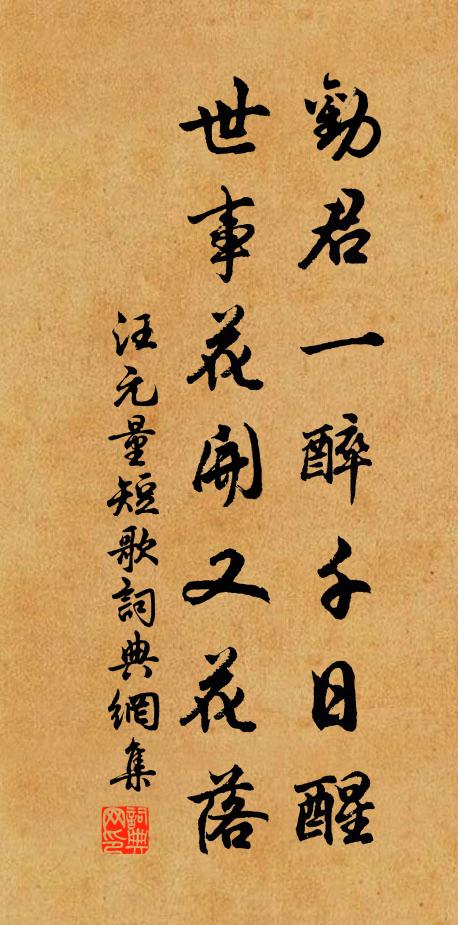 勸君一醉千日醒
世事花開又花落
汪元量短歌詞典網集
詞典網印